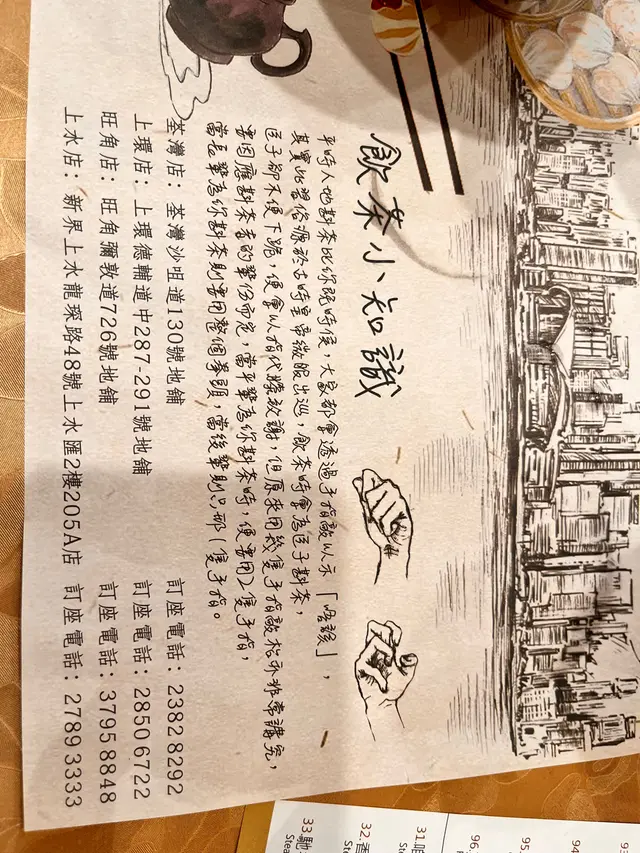 飲茶小知識
平時人地斟茶比你既時侯，大家都會透過手指敲以示「唔該」，
其實此習俗源於古時皇帝微服出巡，飲茶時會為臣子斟茶，
臣子卻不便下跪，便會以指代膝敬謝，但原來用幾隻手指敲枱亦非常講究，
需因應斟茶者的輩份而定，當平輩為你斟茶時，便需用2隻手指，
當長輩為你斟茶則需用整個拳頭，當後輩則只那1隻手指。
荃灣店：荃灣沙咀道130號地舖 訂座電話：2382 8292
上環店：上環德輔道中287-291號地舖 訂座電話：2850 6722
旺角店：旺角彌敦道726號地舖 訂座電話：3795 8848
上水店：新界上水龍琛路48號上水匯2樓205A店 訂座電話：2789 3333
93
94
95
96.
31.
32.香
Ste
33.馳
Stea